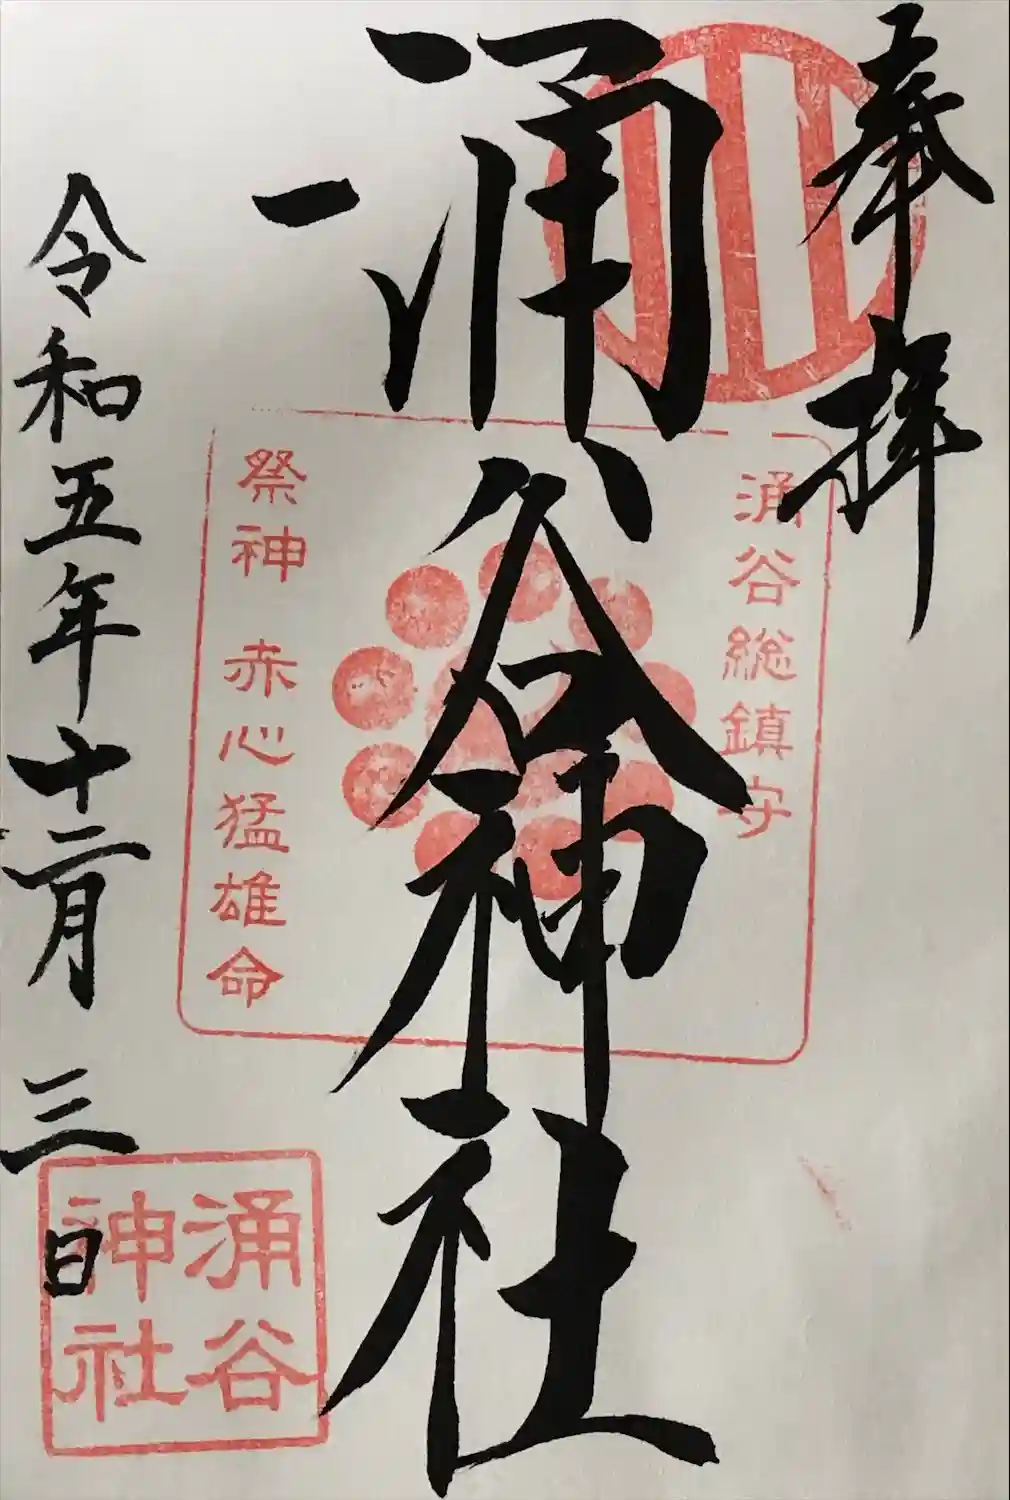 奉拝
涌谷総鎮守
涌谷神社
祭神 赤心猛雄命
令和五年十二月三日
涌谷
神社